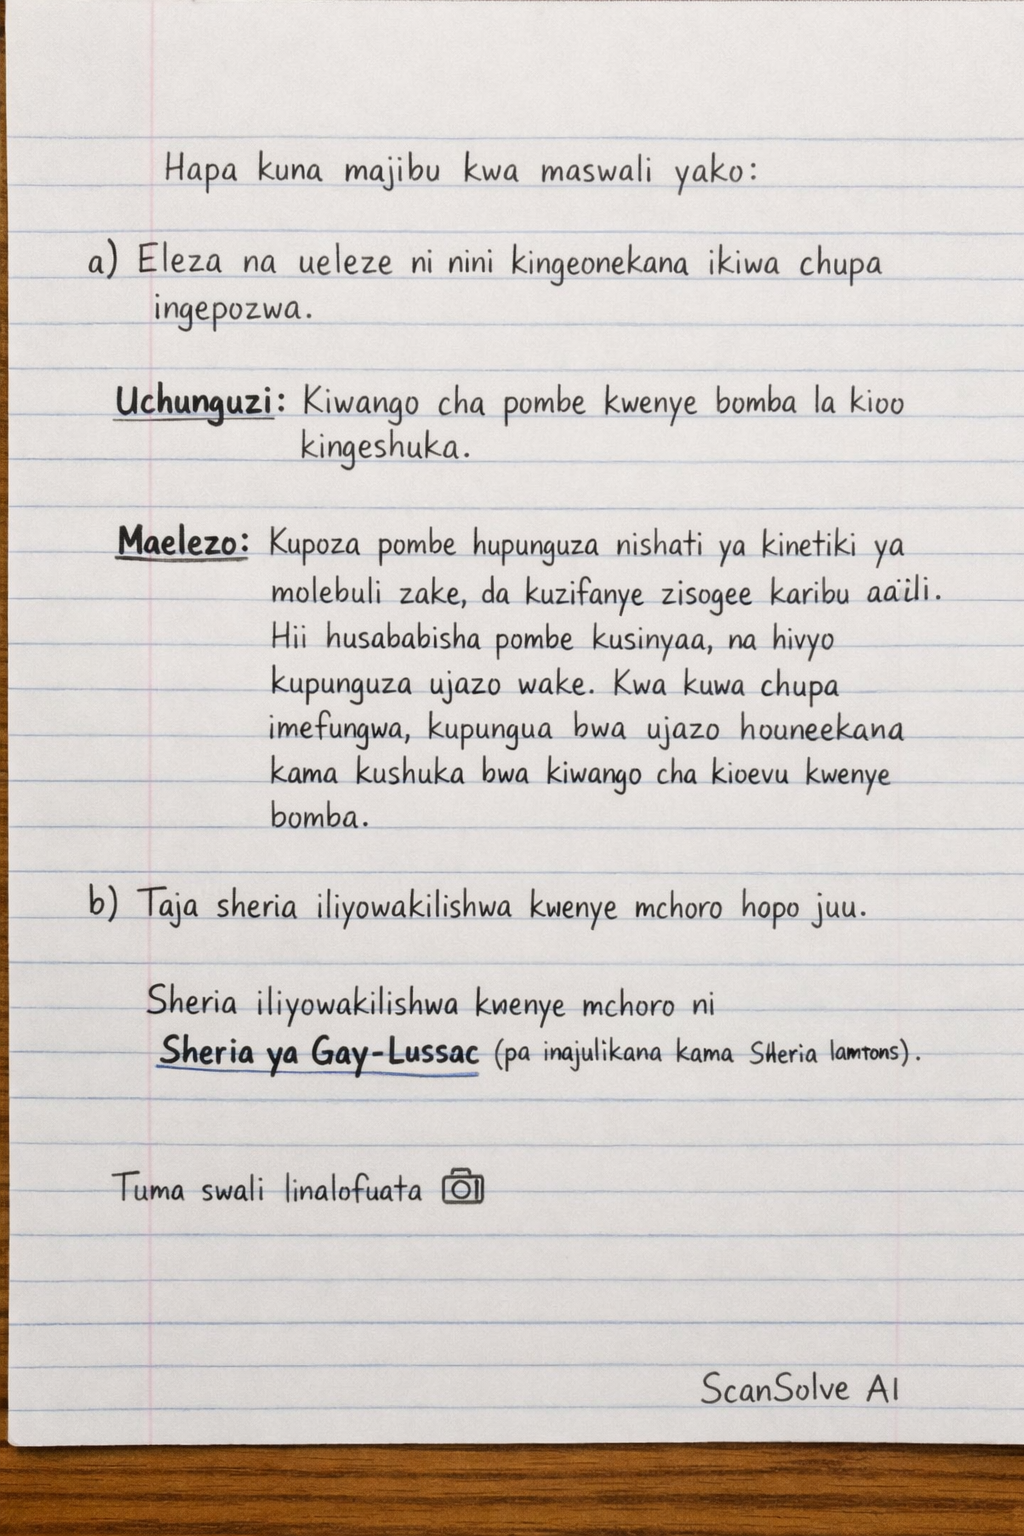 Hapa kuna majibu kwa maswali yako:
a) Eleza na ueleze ni nini kingeonekana ikiwa chupa
ingepozwa.
Uchunguzi: Kiwango cha pombe kwenye bomba la kioo
kingeshuka.
Maelezo: Kupoza pombe hupunguza nishati ya kinetiki ya
molebuli zake, da kuzifanye zisogee karibu
Hii husababisha pombe kusinyaa, na hivyo
kupunguza ujazo wake. Kwa kuwa chupa
imefungwa, kupungua bwa ujazo houneekana
kama kushuka bwa kiwango cha kioevu kwenye
bomba.
b) Taja sheria iliyowakilishwa kwenye mchoro hopo juu.
Sheria iliyowakilishwa kwenye mchoro ni
Sheria ya Gay-Lussac (pa inajulikana kama SHeria lamtons).
Tuma swali linalofuata
ScanSolve AI